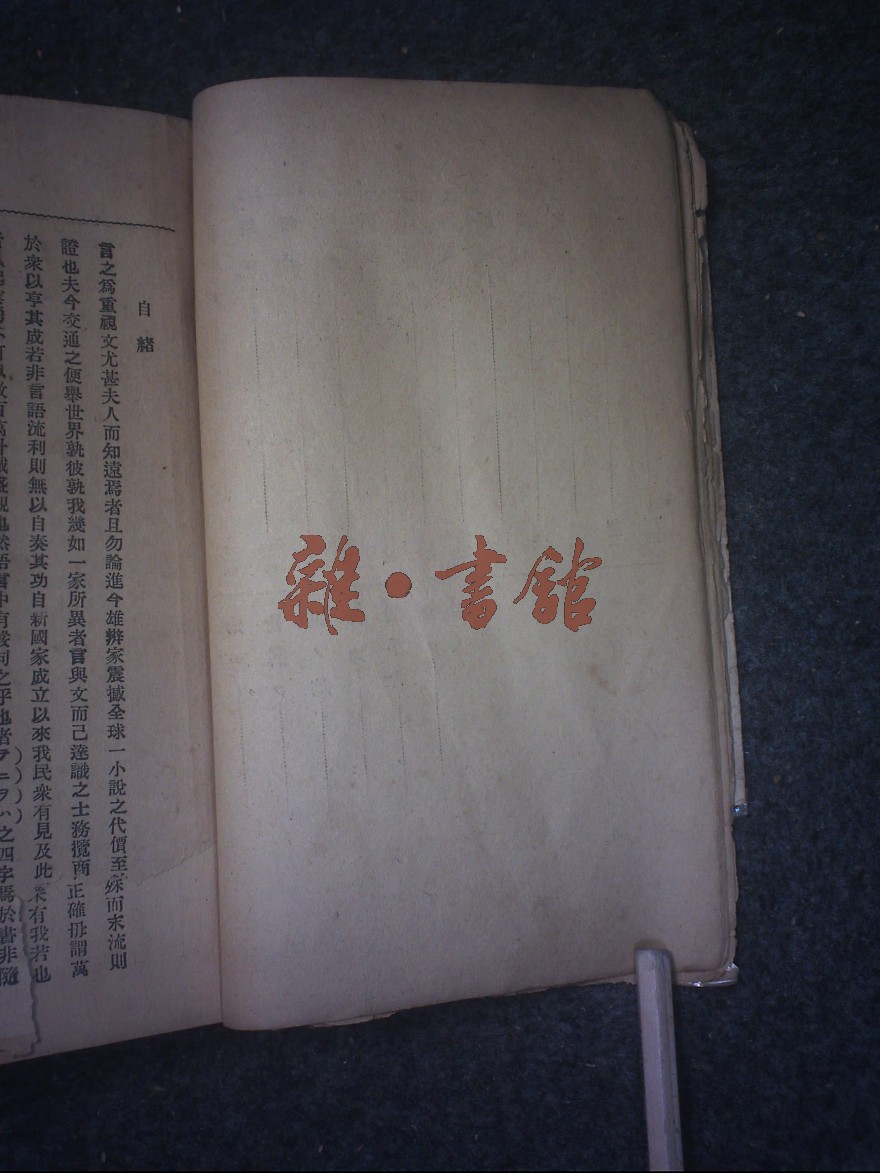 自緒
言之為重視文尤甚夫人而知遠焉者且勿論進今雄辨家震撼全球一小說之代價至殊而末流則
證也夫今交通之便舉世界孰彼孰我幾如一家所異者言與文而已達識之士務攬商正確毋謂萬
於衆以享其成若非言語流利則無以自奏其功自新國家成立以來我民衆有見及此未有我若也
之四字焉於書非隨
雜·書館